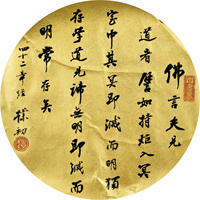 佛言夫見
道者譬如持炬入冥
室中其冥即滅而明獨
存學道見諦無明即滅而
明常存矣
四十二章經 樸初